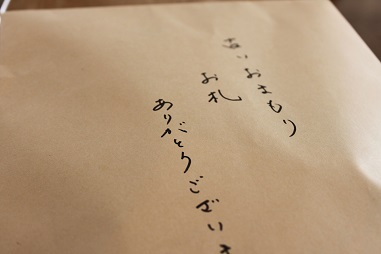 おまもり
お札
ありがとうございま